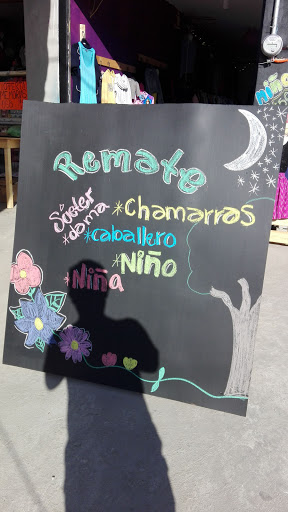 Remate
Sueter
*dama
*Chamarras
*caballero
*Niño
*Niña
Niño